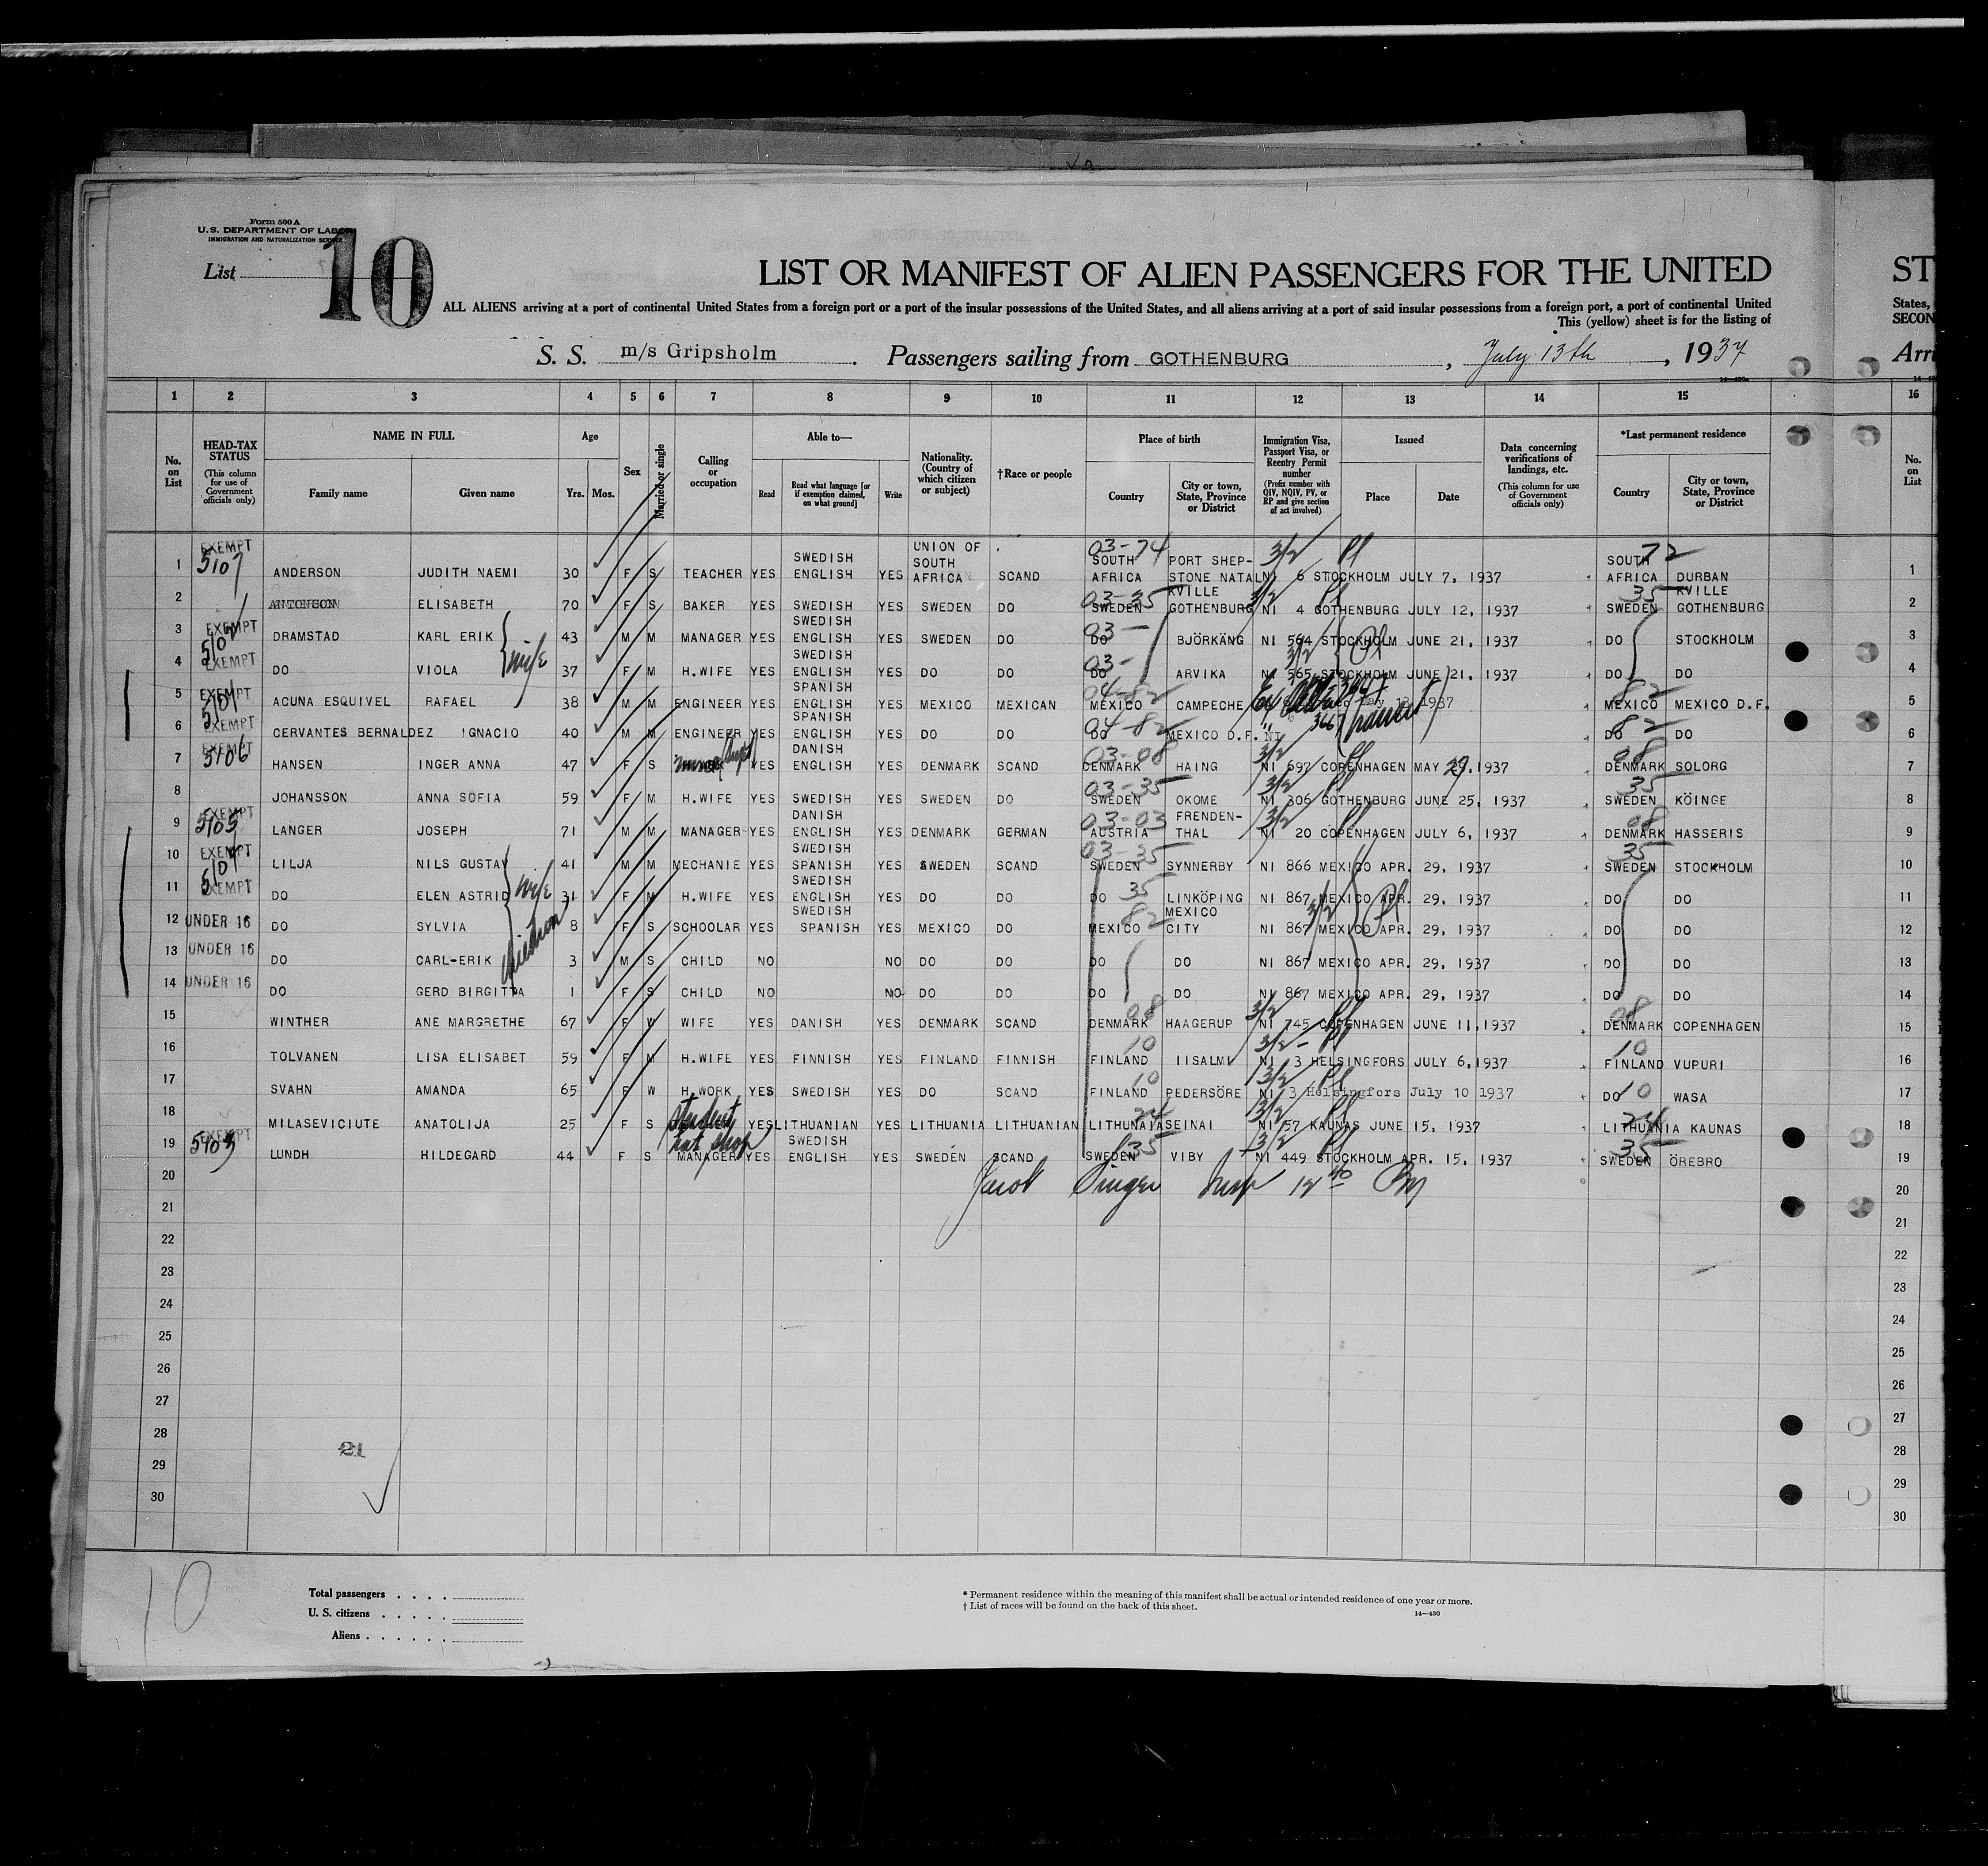 Form 500 A
U.S. DEPARTMENT OF LABOR
IMMIGRATION AND NATURALIZATION SERVICE
List
10
LIST OR MANIFEST OF ALIEN PASSENGERS FOR THE UNITED
ST
ALL ALIENS arriving at a port of continental United States from a foreign port or a port of the insular possessions of the United States, and all aliens arriving at a port of said insular possessions from a foreign port, a port of continental United
States,
This (yellow) sheet is for the listing of
SECON
S. S. m/s Gripsholm. Passengers sailing from GOTHENBURG, July 13th, 1937
Arri
1 2 3 4 5 6 7 8 9 10 11 12 13 14 15 16
No. on List
HEAD-TAX STATUS
(This column for use of Government officials only)
NAME IN FULL
Family name
Given name
Age
Yrs.
Mos.
Sex
Married or single
Calling or occupation
Able to—
Read
Read what language [or if exemption claimed, on what ground]
Write
Nationality. (Country of which citizen or subject)
†Race or people
Place of birth
Country
City or town, State, Province or District
Immigration Visa, Passport Visa, or Reentry Permit number
(Prefix number with QIV, NQIV, PV, or RP and give section of act involved)
Issued
Place
Date
Data concerning verifications of landings, etc.
(This column for use of Government officials only)
*Last permanent residence
Country
City or town, State, Province or District
No. on List
1 EXEMPT 5107 ANDERSON JUDITH NAEMI 30 F S TEACHER YES SWEDISH ENGLISH YES UNION OF SOUTH AFRICA SCAND 03-74 SOUTH AFRICA PORT SHEP- STONE NATAL 3/2 NI 6 STOCKHOLM JULY 7, 1937 72 SOUTH AFRICA DURBAN 1
2 ELISABETH 70 F S BAKER YES SWEDISH YES SWEDEN DO 03-35 SWEDEN KVILLE GOTHENBURG 3/2 NI 4 GOTHENBURG JULY 12, 1937 35 SWEDEN KVILLE GOTHENBURG 2
3 EXEMPT DRAMSTAD KARL ERIK 43 M M MANAGER YES SWEDISH ENGLISH YES SWEDEN DO 03- DO BJÖRKÄNG NI 564 STOCKHOLM JUNE 21, 1937 DO STOCKHOLM 3
4 EXEMPT DO VIOLA wife 37 F M H.WIFE YES SWEDISH ENGLISH YES DO DO 03- DO ARVIKA 3/2 NI 565 STOCKHOLM JUNE 21, 1937 DO DO 4
5 EXEMPT ACUNA ESQUIVEL RAFAEL 38 M M ENGINEER YES SPANISH ENGLISH YES MEXICO MEXICAN 04-82 MEXICO CAMPECHE 1937 82 MEXICO MEXICO D.F. 5
6 EXEMPT CERVANTES BERNALDEZ IGNACIO 40 M M ENGINEER YES SPANISH ENGLISH YES DO DO 04-82 DO MEXICO D.F. NI transit 82 DO DO 6
7 EXEMPT 5106 HANSEN INGER ANNA 47 F S YES DANISH ENGLISH YES DENMARK SCAND 03-08 DENMARK HAING 3/2 NI 697 COPENHAGEN MAY 29, 1937 08 DENMARK SOLORG 7
8 JOHANSSON ANNA SOFIA 59 F M H.WIFE YES SWEDISH YES SWEDEN DO 03-35 SWEDEN OKOME 3/2 NI 306 GOTHENBURG JUNE 25, 1937 35 SWEDEN KÖINGE 8
9 EXEMPT 5105 LANGER JOSEPH 71 M M MANAGER YES DANISH ENGLISH YES DENMARK GERMAN 03-03 AUSTRIA FRENDEN- THAL 3/2 NI 20 COPENHAGEN JULY 6, 1937 08 DENMARK HASSERIS 9
10 EXEMPT LILJA NILS GUSTAV 41 M M MECHANIE YES SWEDISH SPANISH YES SWEDEN SCAND 03-35 SWEDEN SYNNERBY NI 866 MEXICO APR. 29, 1937 35 SWEDEN STOCKHOLM 10
11 EXEMPT DO ELEN ASTRID wife 31 F M H.WIFE YES SWEDISH ENGLISH YES DO DO DO 35 LINKÖPING NI 867 MEXICO APR. 29, 1937 DO DO 11
12 UNDER 16 DO SYLVIA children 8 F S SCHOOLAR YES SWEDISH SPANISH YES MEXICO DO 82 MEXICO MEXICO CITY 3/2 NI 867 MEXICO APR. 29, 1937 DO DO 12
13 UNDER 16 DO CARL-ERIK 3 M S CHILD NO NO DO DO DO DO NI 867 MEXICO APR. 29, 1937 DO DO 13
14 UNDER 16 DO GERD BIRGITTA 1 F S CHILD NO NO DO DO DO DO NI 867 MEXICO APR. 29, 1937 DO DO 14
15 WINTHER ANE MARGRETHE 67 F W WIFE YES DANISH YES DENMARK SCAND 08 DENMARK HAAGERUP 3/2 NI 745 COPENHAGEN JUNE 11, 1937 08 DENMARK COPENHAGEN 15
16 TOLVANEN LISA ELISABET 59 F M H.WIFE YES FINNISH YES FINLAND FINNISH 10 FINLAND IISALMI 3/2 NI 3 HELSINGFORS JULY 6, 1937 10 FINLAND VUPURI 16
17 SVAHN AMANDA 65 F W H.WORK YES SWEDISH YES DO SCAND 10 FINLAND PEDERSÖRE 3/2 NI 3 Helsingfors July 10 1937 DO 10 WASA 17
18 MILASEVICIUTE ANATOLIJA 25 F S student YES LITHUANIAN YES LITHUANIA LITHUANIAN 24 LITHUNAIA SEINAI 3/2 NI 57 KAUNAS JUNE 15, 1937 24 LITHUANIA KAUNAS 18
19 EXEMPT LUNDH HILDEGARD 44 F S hat shop MANAGER YES SWEDISH ENGLISH YES SWEDEN SCAND 35 SWEDEN VIBY 3/2 NI 449 STOCKHOLM APR. 15, 1937 35 SWEDEN ÖREBRO 19
20 Jacob Singer Insp 12 40 PM 20
21 21
22 22
23 23
24 24
25 25
26 26
27 27
28 28
21
29 29
30 30
10
Total passengers
U. S. citizens
Aliens
* Permanent residence within the meaning of this manifest shall be actual or intended residence of one year or more.
† List of races will be found on the back of this sheet.
14—430